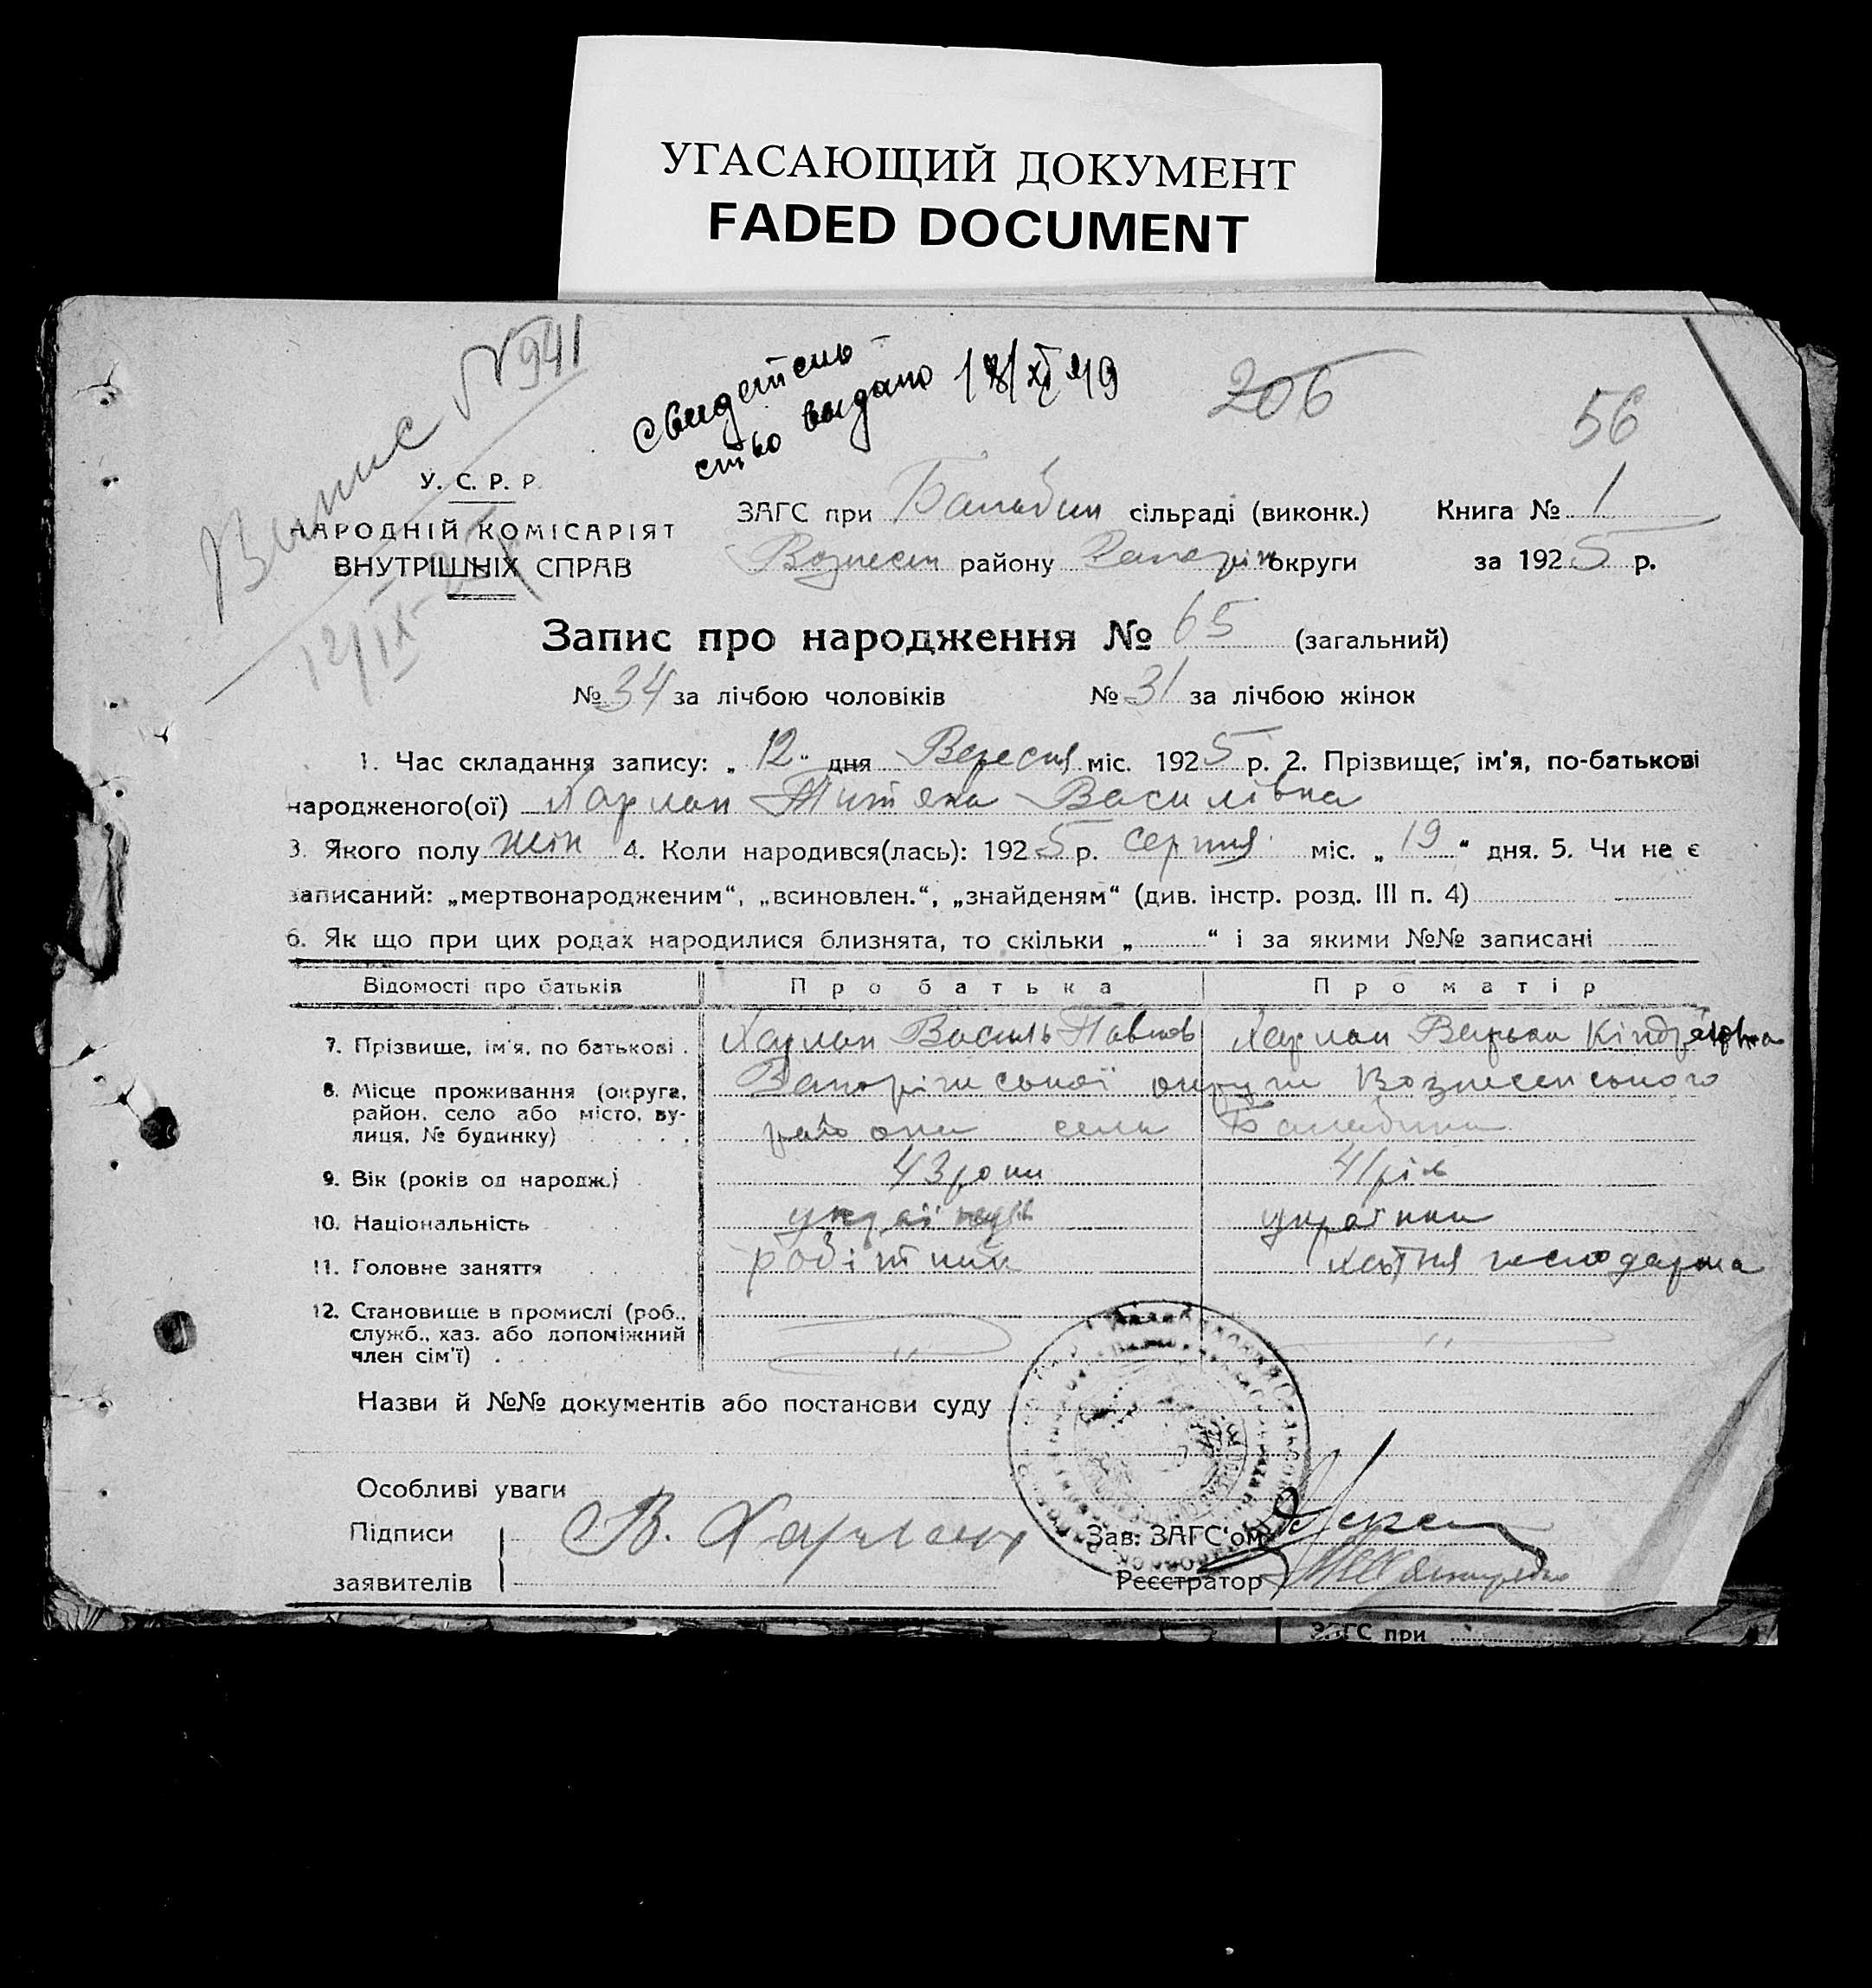 УГАСАЮЩИЙ ДОКУМЕНТ
FADED DOCUMENT
Випис №941
12/IX-25
Свидетель
ство выдано 18/XI 49
206
56
У. С. Р. Р.
НАРОДНІЙ КОМІСАРІЯТ
ВНУТРІШНІХ СПРАВ
ЗАГС при Балабин сільраді (виконк.) Книга № 1
Вознесен району Запоріж округи за 1925 р.
Запис про народження № 65 (загальний)
№ 34 за лічбою чоловіків № 31 за лічбою жінок
1. Час складання запису: „ 12 " дня Вересня міс. 1925 р. 2. Прізвище, ім'я, по-батькові
народженого(ої) Харлан Титяна Василівна
3. Якого полу жін 4. Коли народився(лась): 1925 р. серпня міс. „ 19 “ дня. 5. Чи не є
записаний: „мертвонародженим“, „всиновлен.“, „знайденям“ (див. інстр. розд. III п. 4)
6. Як що при цих родах народилися близнята, то скільки „ “ і за якими №№ записані
Відомості про батьків Про батька Про матір
7. Прізвище, ім'я, по батькові . Харлан Василь Павлов Харлан Варька Кіндратовна
8. Місце проживання (округа, Запоріжської округи Вознесенського
район, село або місто, ву-
лиця, № будинку) району села Балабина
9. Вік (років од народж.) 43 роки 41 рік
10. Національність українець українка
11. Головне заняття робітник хатня господарка
12. Становище в промислі (роб.,
служб., хаз. або допоміжний
член сім'ї) . " "
Назви й №№ документів або постанови суду
Особливі уваги
Підписи В. Харлан Зав. ЗАГС'ом
заявителів Реєстратор
ЗАГС при